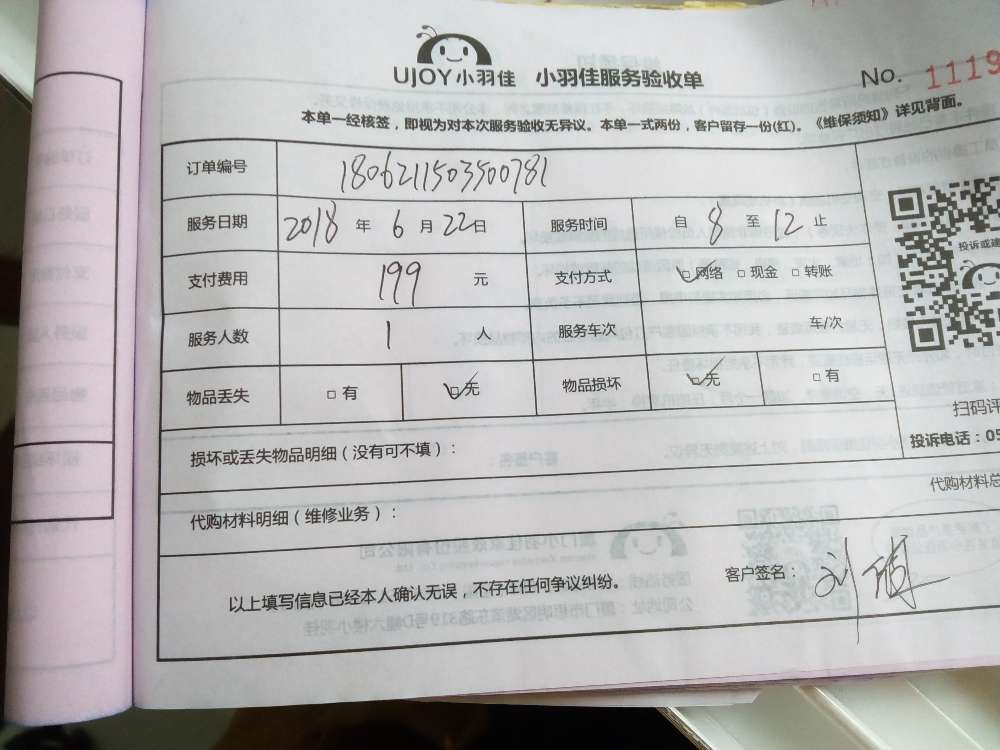 UJOY小羽佳 小羽佳服务验收单
No. 1119
本单一经核签，即视为对本次服务验收无异议。本单一式两份，客户留存一份(红)。《维保须知》详见背面。
订单编号 1806211503500781
服务日期 2018 年 6 月 22 日 服务时间 自 8 至 12 止
投诉或建
支付费用 199 元 支付方式 ☑网络 □现金 □转账
服务人数 1 人 服务车次 车/次
物品丢失 □有 ☑无 物品损坏 ☑无 □有
扫码评
投诉电话：05
损坏或丢失物品明细（没有可不填）：
代购材料总
代购材料明细（维修业务）：
以上填写信息已经本人确认无误，不存在任何争议纠纷。 客户签名：刘